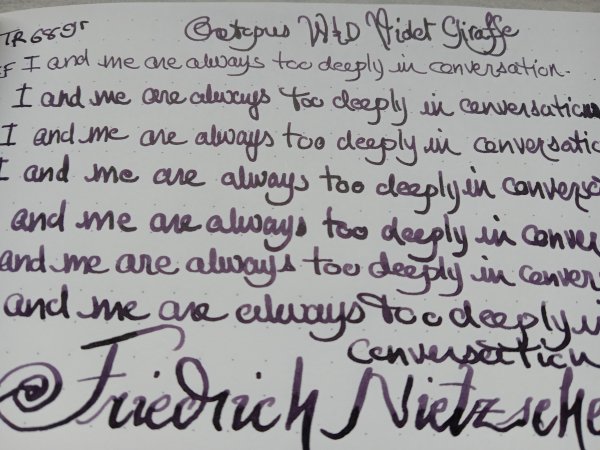 TR 68gr Octopus W&D Violet Giraffe
EF I and me are always too deeply in conversation.
I and me are always too deeply in conversation
I and me are always too deeply in conversatio
I and me are always too deeply in converso
and me are always too deeply in conver
and me are always too deeply in conver
and me are always too deeply i
conversation
@Friedrich Nietzsche